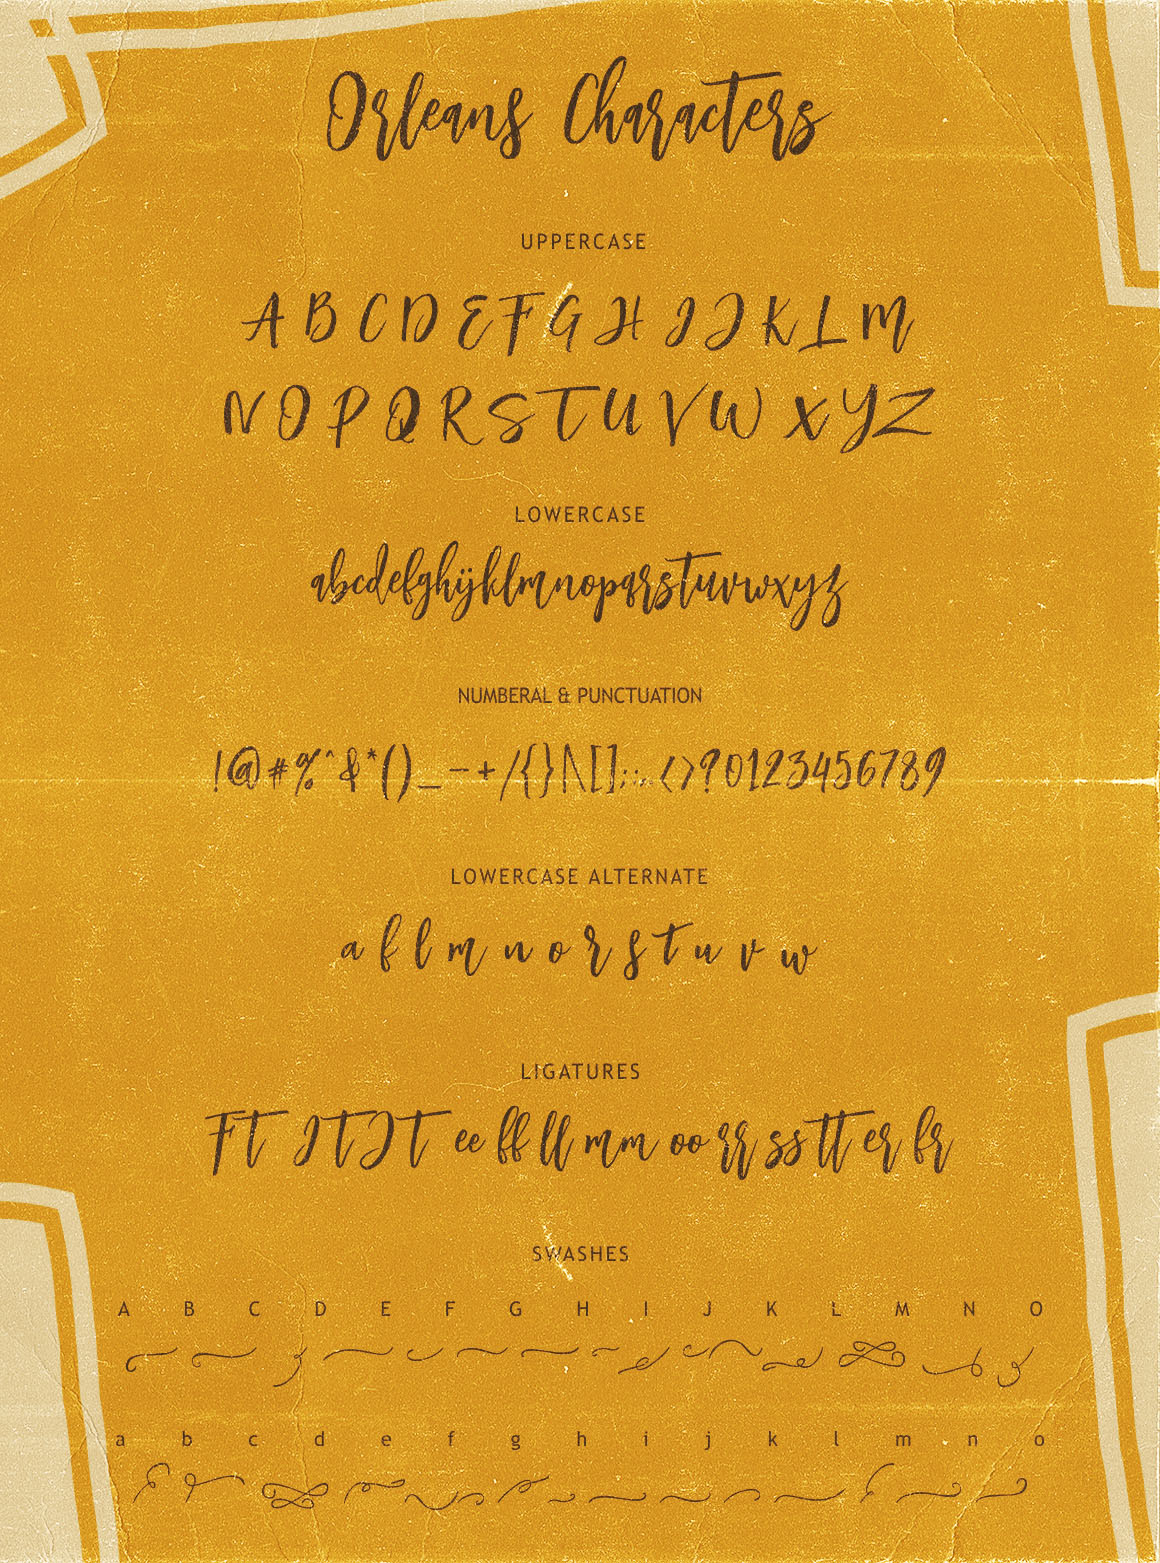 Orleans Characters
UPPERCASE
A B C D E F G H I J K L M
N O P Q R S T U V W X Y Z
LOWERCASE
abcdefghijklmnopqrstuvwxyz
NUMBERAL & PUNCTUATION
!@#%^&*()_-+/{}|\[]:;.,<>?0123456789
LOWERCASE ALTERNATE
a f l m n o r s t u v w
LIGATURES
FT IT JT ee ff ll mm oo rr ss tt er fr
SWASHES
A B C D E F G H I J K L M N O
a b c d e f g h i j k l m n o